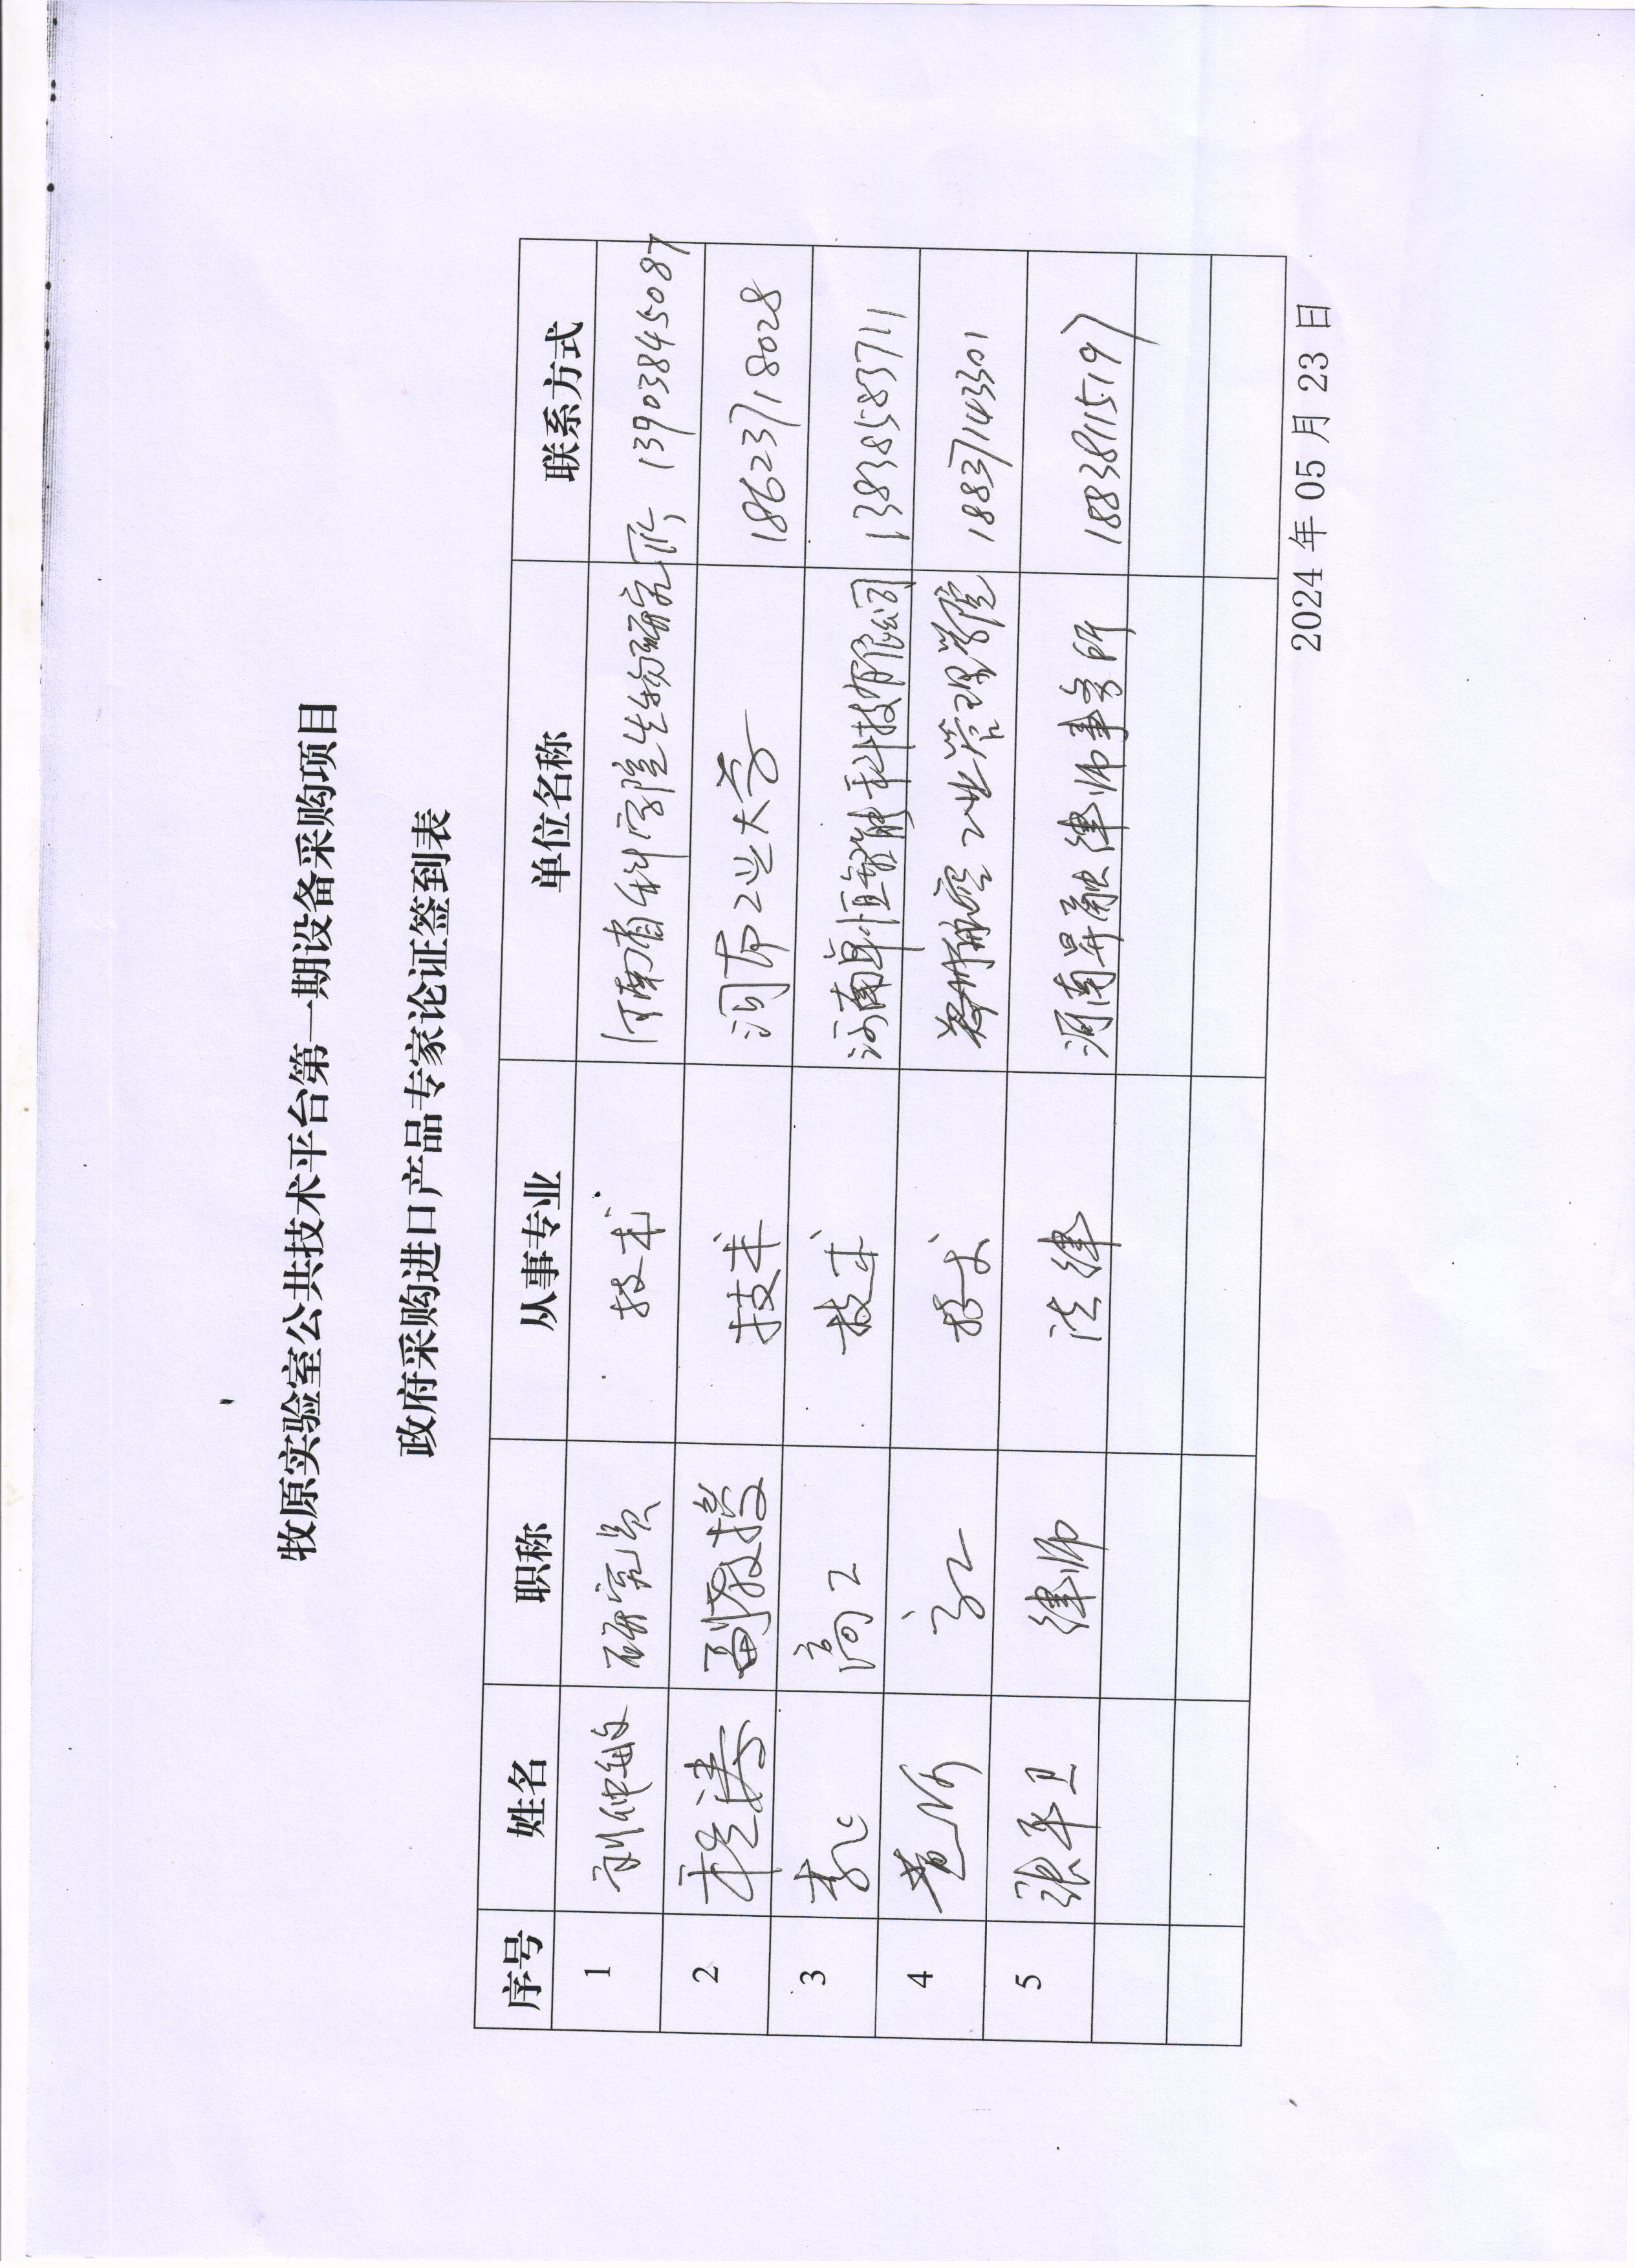 牧原实验室公共技术平台第一期设备采购项目
政府采购进口产品专家论证签到表
序号 姓名 职称 从事专业 单位名称 联系方式
1 刘仲敏 研究员 技术 河南省科学院生物研究所 13903845087
2 副教授 技术 河南工业大学 18623718028
3 高工 技术 河南卓恒敏能科技有限公司 13838583711
4 高工 技术 郑州航空工业管理学院 18837143301
5 张平卫 律师 法律 河南昇融律师事务所 18838115197
2024 年 05 月 23 日